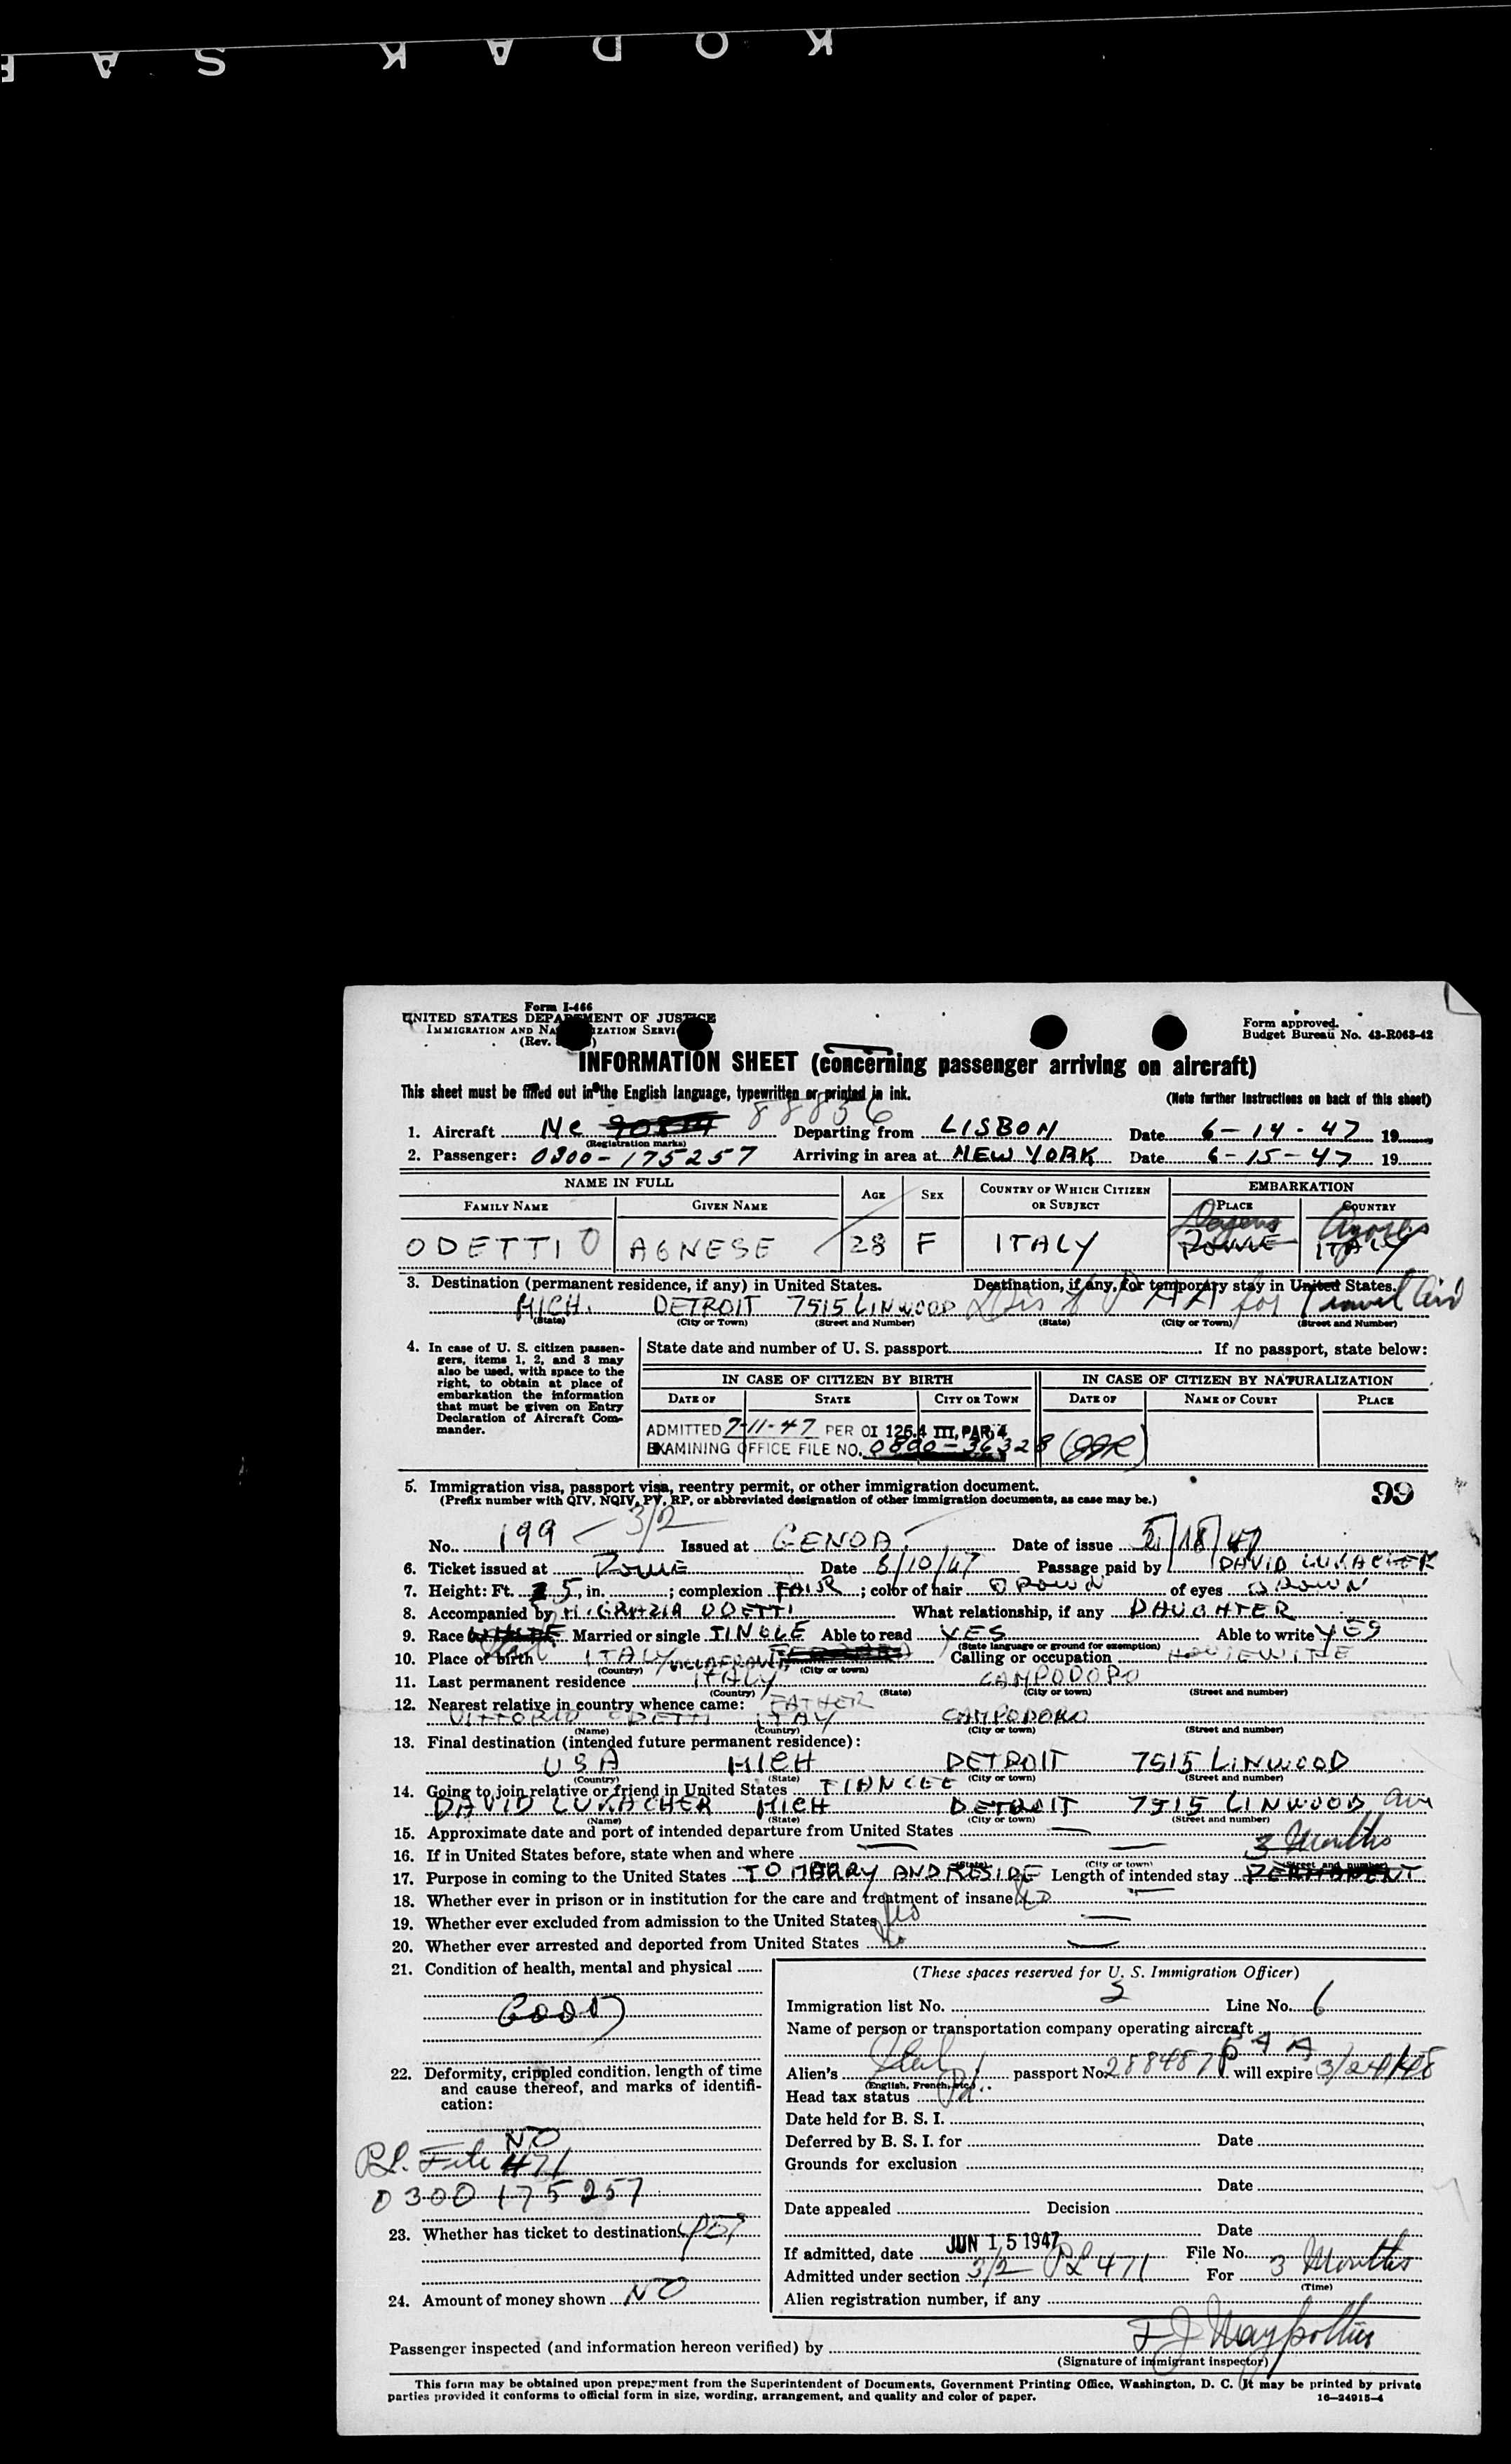 KODAK SAFE
Form I-466
UNITED STATES DEPARTMENT OF JUSTICE
IMMIGRATION AND NATURALIZATION SERVICE
(Rev.
Form approved.
Budget Bureau No. 43-R063-42
INFORMATION SHEET (concerning passenger arriving on aircraft)
This sheet must be filled out in the English language, typewritten or printed in ink.
(Note further instructions on back of this sheet)
88856
1. Aircraft NC (Registration marks) Departing from LISBON Date 6-14-47 19
2. Passenger: 0300-175257 Arriving in area at NEW YORK Date 6-15-47 19
NAME IN FULL
FAMILY NAME GIVEN NAME AGE SEX COUNTRY OF WHICH CITIZEN OR SUBJECT EMBARKATION PLACE COUNTRY
Azores
ODETTI O AGNESE 28 F ITALY ROME ITALY
3. Destination (permanent residence, if any) in United States. Destination, if any, for temporary stay in United States.
MICH. DETROIT 7515 LINWOOD
(State) (City or Town) (Street and Number) (State) (City or Town) (Street and Number)
4. In case of U. S. citizen passengers, items 1, 2, and 3 may also be used, with space to the right, to obtain at place of embarkation the information that must be given on Entry Declaration of Aircraft Commander.
State date and number of U. S. passport If no passport, state below:
IN CASE OF CITIZEN BY BIRTH IN CASE OF CITIZEN BY NATURALIZATION
DATE OF STATE CITY OR TOWN DATE OF NAME OF COURT PLACE
ADMITTED 7-11-47 PER OI 126.4 III, PAR. 4
EXAMINING OFFICE FILE NO. 0800-36328
5. Immigration visa, passport visa, reentry permit, or other immigration document.
99
(Prefix number with QIV, NQIV, PV, RP, or abbreviated designation of other immigration documents, as case may be.)
No. 199 3/2 Issued at GENOA Date of issue 5/18/47
6. Ticket issued at ROME Date 6/10/47 Passage paid by DAVID LUKACHER
7. Height: Ft. 5, in. ; complexion FAIR; color of hair BROWN of eyes BROWN
8. Accompanied by M. GRAZIA ODETTI What relationship, if any DAUGHTER
9. Race WHITE Married or single SINGLE Able to read YES Able to write YES
(State language or ground for exemption)
10. Place of birth ITALY VILLAFRANCA Calling or occupation HOUSEWIFE
(Country) (City or town)
11. Last permanent residence ITALY CAMPODORO
(Country) (State) (City or town) (Street and number)
12. Nearest relative in country whence came: FATHER
VITTORIO ODETTI ITALY CAMPODORO
(Name) (Country) (City or town) (Street and number)
13. Final destination (intended future permanent residence):
USA MICH DETROIT 7515 LINWOOD
(Country) (State) (City or town) (Street and number)
14. Going to join relative or friend in United States FIANCEE
DAVID LUKACHER MICH DETROIT 7515 LINWOOD ave
(Name) (State) (City or town) (Street and number)
15. Approximate date and port of intended departure from United States —
16. If in United States before, state when and where — — 3 Months
(State) (City or town) (Street and number)
17. Purpose in coming to the United States TO MARRY AND RESIDE Length of intended stay PERMANENT
18. Whether ever in prison or in institution for the care and treatment of insane No —
19. Whether ever excluded from admission to the United States No —
20. Whether ever arrested and deported from United States No —
21. Condition of health, mental and physical
GOOD
22. Deformity, crippled condition, length of time and cause thereof, and marks of identification:
NO
P.L. File 471
0300 175257
23. Whether has ticket to destination yes
24. Amount of money shown NO
(These spaces reserved for U. S. Immigration Officer)
Immigration list No. 3 Line No. 6
Name of person or transportation company operating aircraft
PAA
Alien's Ital. passport No. 288487 P will expire 3/24/48
(English, French, etc.)
Head tax status Pd.
Date held for B. S. I.
Deferred by B. S. I. for Date
Grounds for exclusion
Date
Date appealed Decision
Date
If admitted, date JUN 15 1947 File No.
Admitted under section 3/2 PL 471 For 3 Months
(Time)
Alien registration number, if any
Passenger inspected (and information hereon verified) by
(Signature of immigrant inspector)
This form may be obtained upon prepayment from the Superintendent of Documents, Government Printing Office, Washington, D. C. It may be printed by private
parties provided it conforms to official form in size, wording, arrangement, and quality and color of paper.
16—24915-4